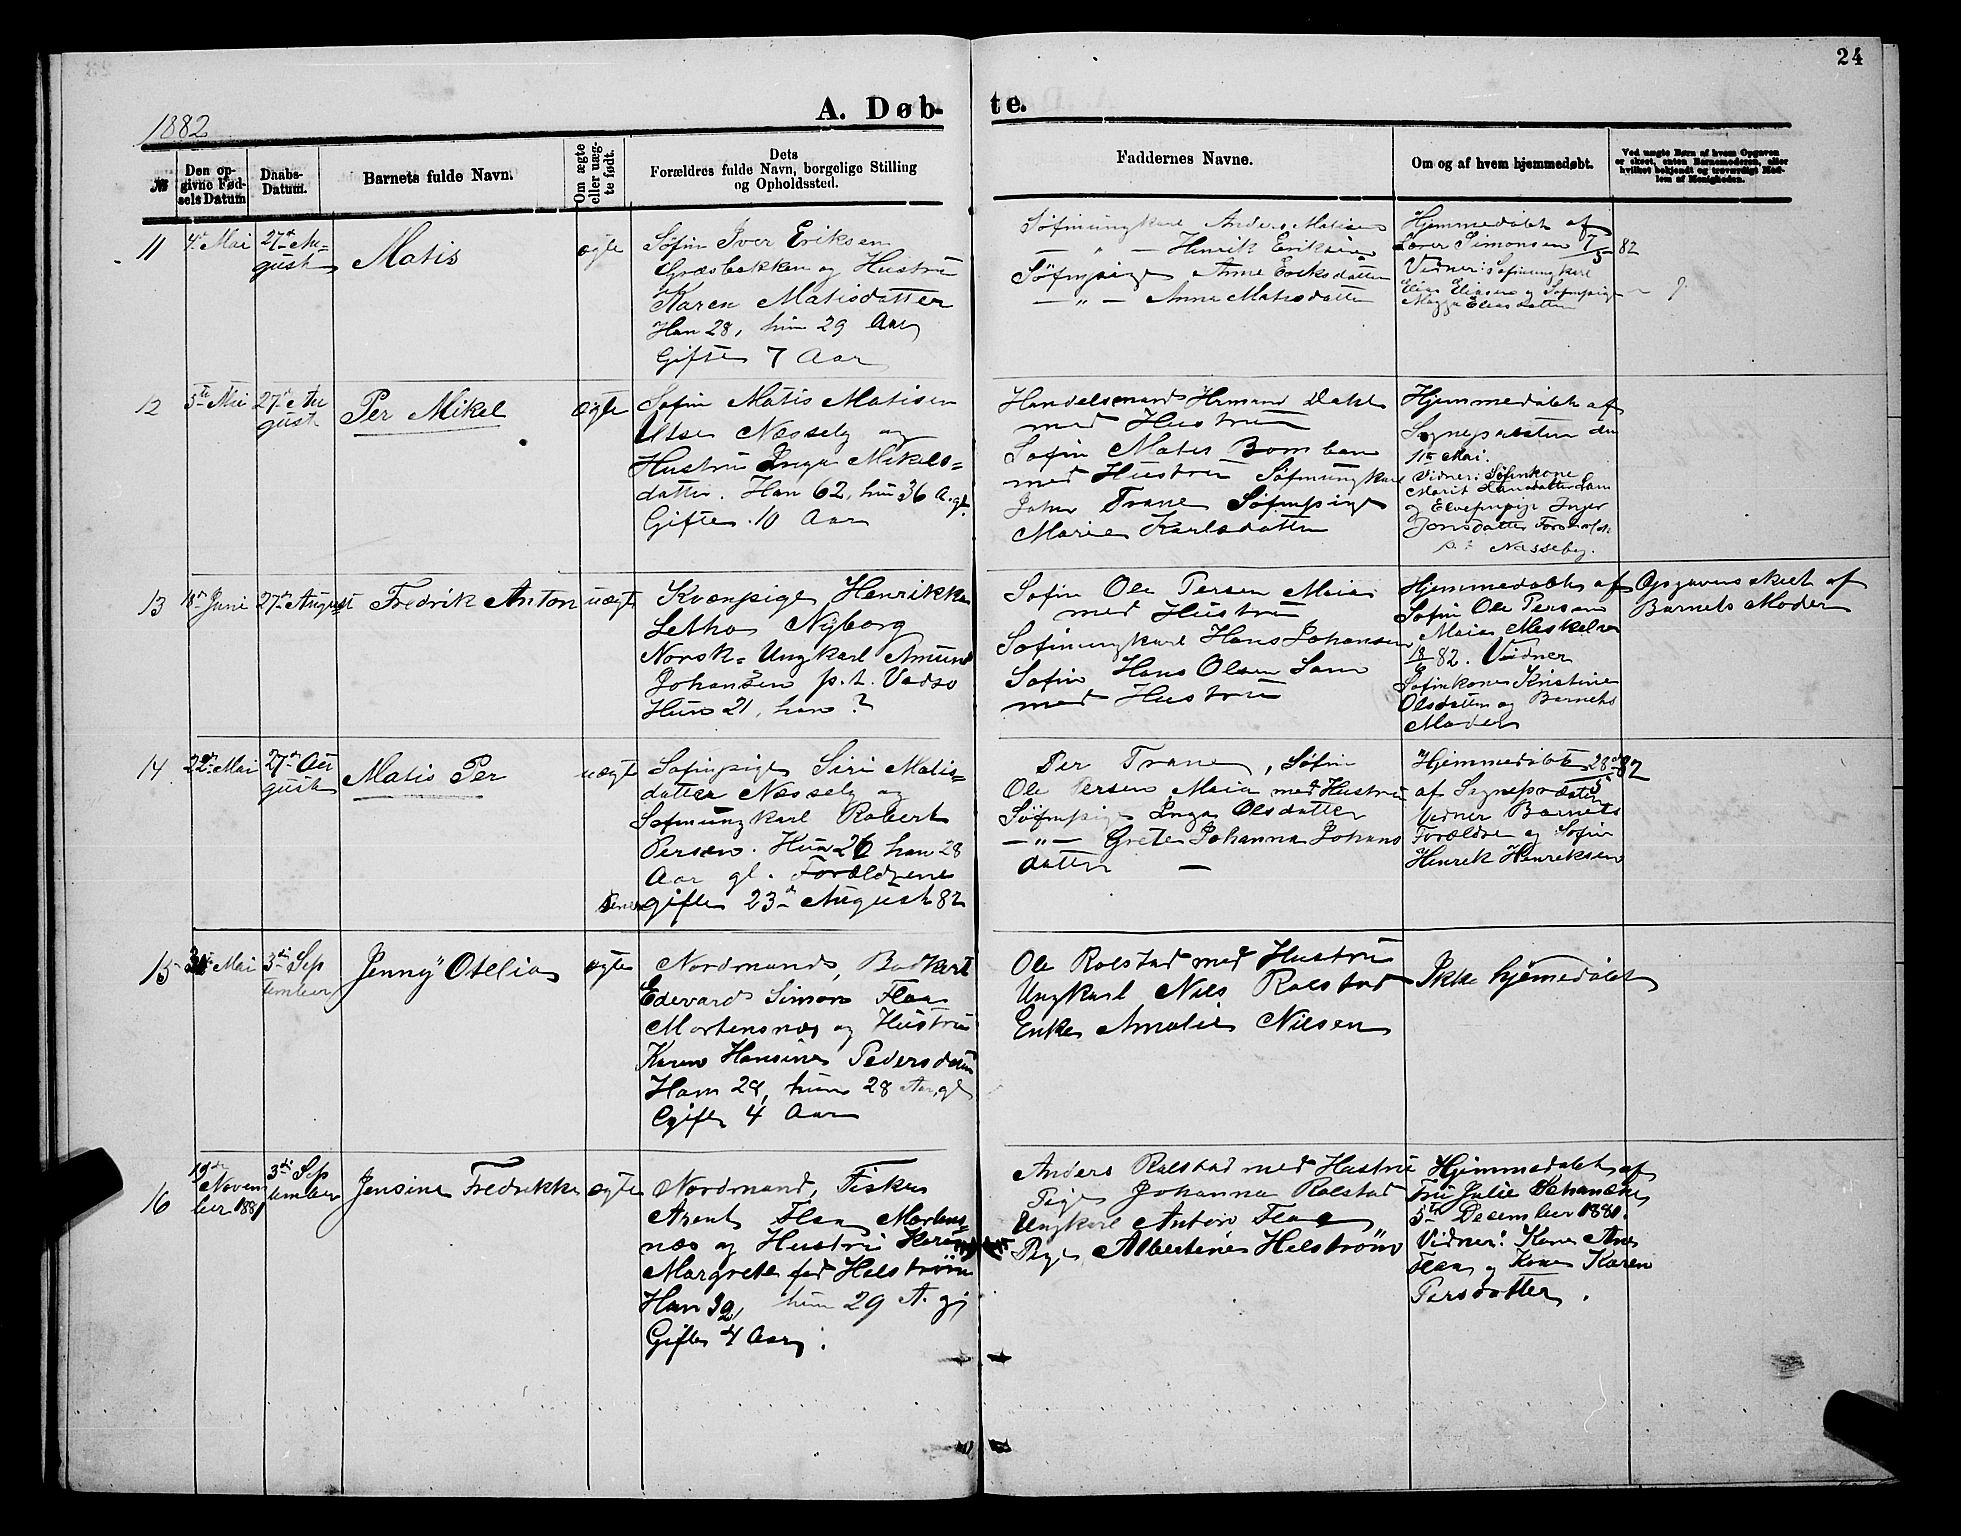 24
A. Døbte.
1882
№
Den opgivne Fødsels Datum
Daabs-Datum.
Barnets fulde Navn.
Om ægte eller uægte født.
Dets Forældres fulde Navn, borgelige Stilling og Opholdssted.
Faddernes Navne.
Om og af hvem hjemmedøbt.
Ved uægte Børn af hvem Opgaven er skeet, enten Barnemoderen, eller hvilket bekjendt og troværdigt Medlem af Menigheden.
11
4de Mai
27de Au-
gust
Matis
ægte
Søfin Iver Eriksen
Græsbakken og Hustru
Karen Matisdatter
Han 28, hun 29 Aar
Gifte 7 Aar
Søfinungkarl Anders Matisen
— " — Henrik Eriksen
Søfinpige Anne Eriksdatter
— " — Anne Matisdatter
Hjemmedøbt af
Lærer Simonsen 7/5 82
Vidner: Søfinungkarl
Elias Eliasen og Søfinpige
Magga Eliasdatter
12
5te Mai
27de Au
gust
Per Mikel
ægte
Søfin Matis Matisen
Utse Nesseby og
Hustru Inga Mikels=
datter. Han 62, hun 36 A. gl.
Gifte 10 Aar
Handelsmand Hermand Dahl
med Hustru
Søfin Mates Bomban
med Hustru Søfinungkarl
Johan Trane Søfinpige
Marie Karlsdatter
Hjemmedøbt af
Sognepræsten den
11te Mai.
Vidner: Søfinkone
Marit Hansdatter Sam
og Elvefinpige Inger
Jonsdatter
p. t. Nesseby.
13
18de Juni
27de August
Fredrik Anton
uægte
Kvænpige Henrikke
Letho Nyborg
Norsk= Ungkarl Amund
Johansen p. t. Vadsø
Hun 21, han ?
Søfin Ole Persen Maia
med Hustru
Søfinungkarl Hans Johansen
Søfin Hans Olsen Sam
med Hustru
Hjemmedøbt af
Søfin Ole Persen
Maia Meskelven
18/ 82. Vidner
Søfinkone Kristine
Olsdatter og Barnets
Moder
Opgaven skeet af
Barnets Moder
14
22de Mai
27de Au
gust
Matis Per
uægte
Søfinpige Siri Matis=
datter Nesseby og
Søfinungkarl Robert
Persen. Hun 26 han 28
Aar gl. Forældrene
gifte 23de August 82
Per Trane, Søfin
Ole Persen Maia med Hustru
Søfinpige Inga Olsdatter
— " — Grete Johanna Johans
datter —
Hjemmedøbt 28de/5 82
af Sognepræsten
Vidner Barnets
Forældre og Søfin
Henrik Henriksen
15
Mai
3die Sep
tember
Jenny Otelia
ægte
Nordmand, Bødker
Edevard Simon Flaa
Mortensnæs og Hustru
Karen Hansine Pedersdatter
Han 28, hun 28 Aar gl
Gift 4 Aar
Ole Rolstad med Hustru
Ungkarl Nils Rolstad
Enke Amalie Nilsen
Ikke hjemedøbt
16
19de
Novem
ber 1881
3die Sep
tember
Jensine Fredrikke
ægte
Nordmand, Fisker
Arent Flaa Mortens=
næs og Hustru Karen
Margrete fød Helstrøm
Han 32, hun 29 A. gl
Gifte 4 Aar.
Anders Rolstad med Hustru
Pige Johanna Rolstad
Ungkarl Anton Flaa
Pige Albertine Helstrøm
Hjemmedøbt af
Fru Julie Schanche
5te December 1881.
Vidner: Kone Ane
Flaa og Kone Karen
Persdatter.